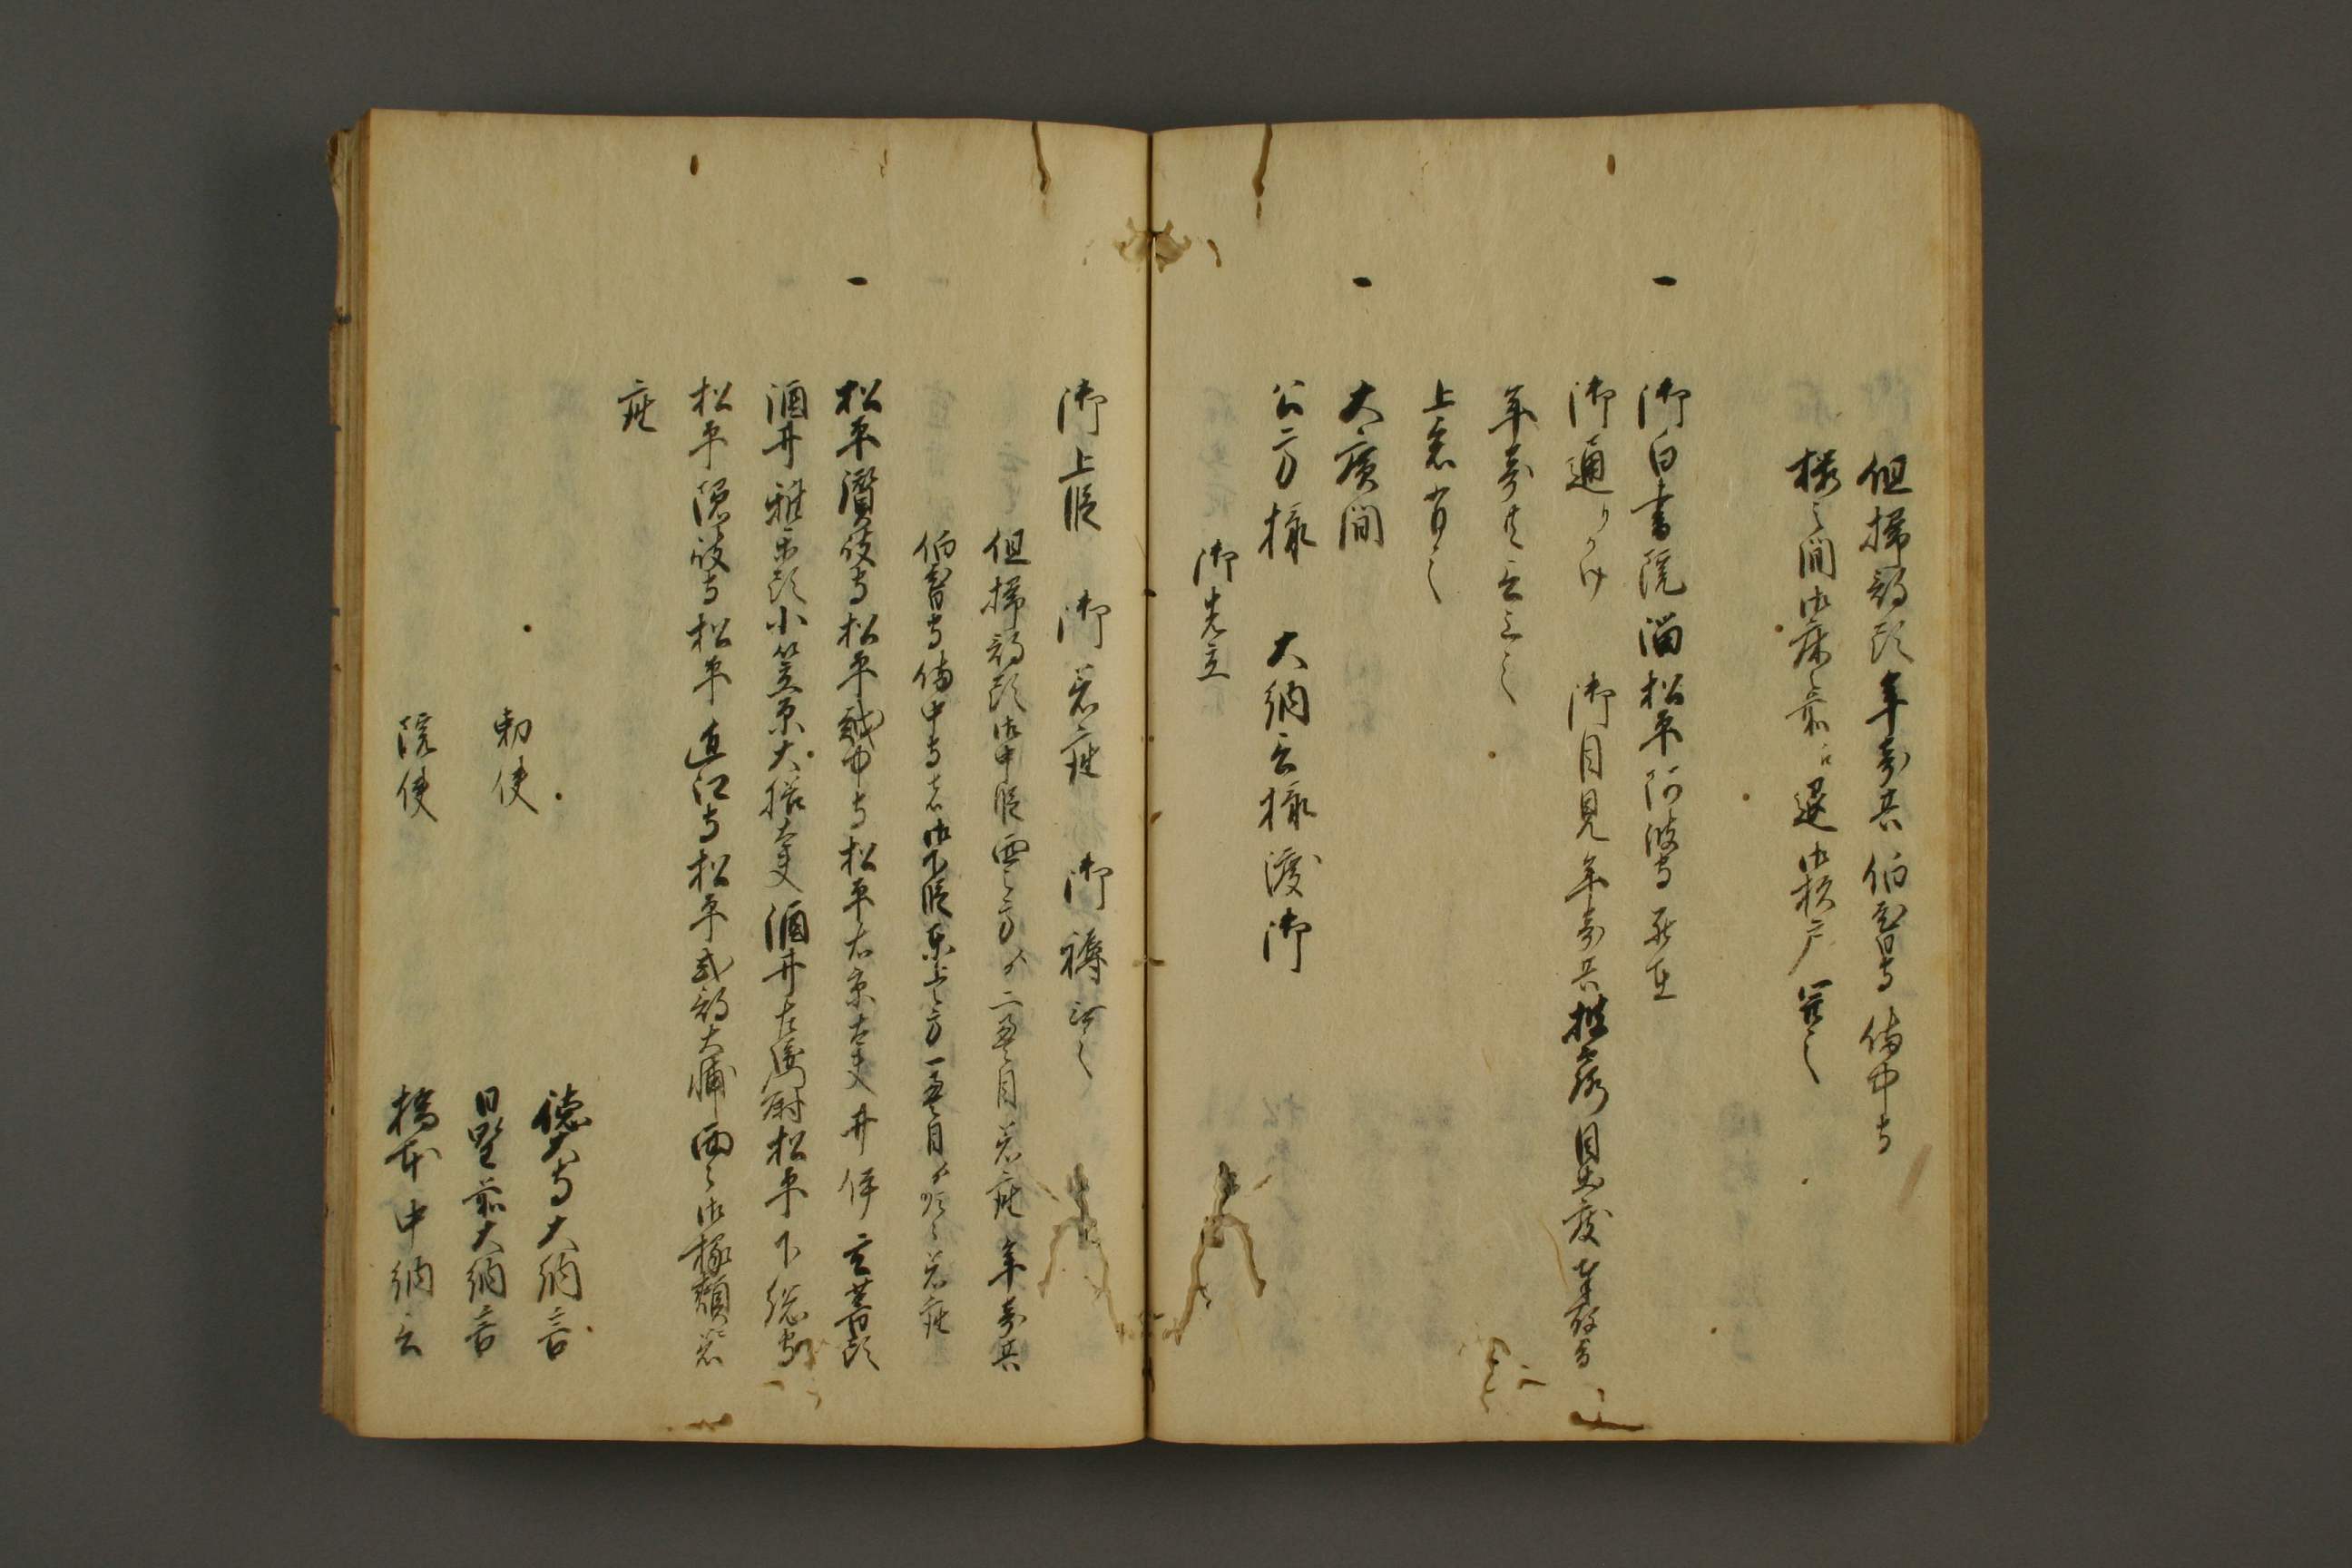 但掃部頭年寄共伯耆守備中守
御白書院溜松平阿波守
御通りかけ 御目見年寄共披露目出度
年寄共言上之
上意有之
一 大廣間
公方様 大納言様渡御
御先立
御上段 御着座 御褥設之
但掃部頭御中段西之方ゟ二畳目着座年寄共
伯耆守備中守者御下段東上之方一畳目ゟ順々着座
一 松平讃岐守松平越中守松平右京大夫井伊玄蕃頭
酒井雅楽頭小笠原大膳大夫酒井左衛門尉松平下総守
松平隠岐守松平近江守松平式部大輔西之御椽頬着
座
勅使
徳大寺大納言
日野前大納言
院使
橋本中納言